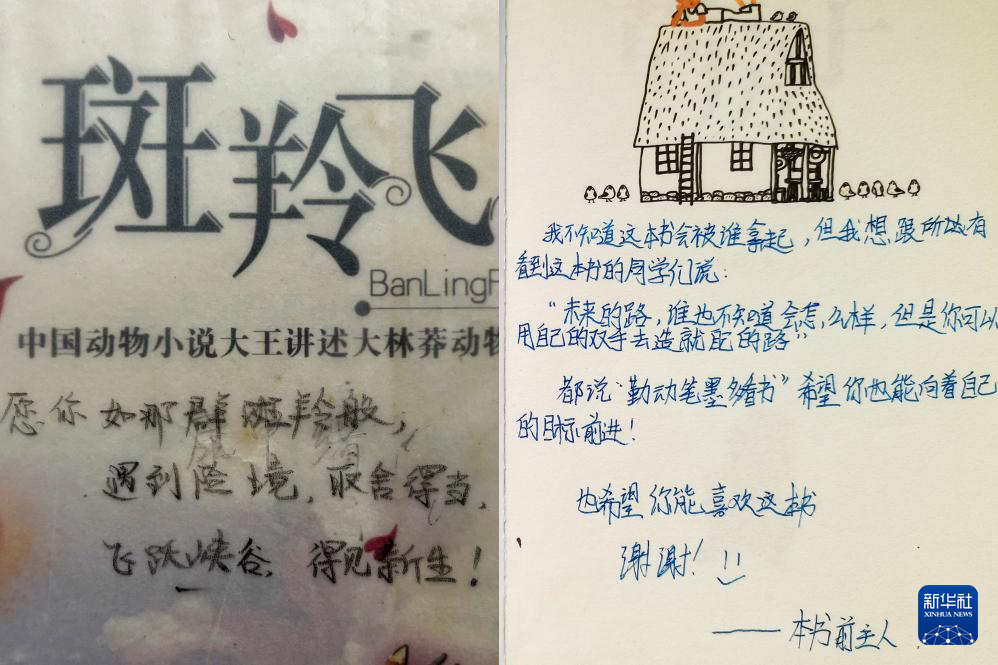 斑羚飞
BanLingF
中国动物小说大王讲述大林莽动物
愿你如那群斑羚般，
遇到险境，取舍得当，
飞跃峡谷，得见新生！
我不知道这本书会被谁拿起，但我想跟所有
看到这本书的同学们说：
“未来的路，谁也不知道会怎么样，但是你可以
用自己的双手去造就自己的路”
都说“勤动笔墨多看书”希望你也能向着自己
的目标前进！
也希望你能喜欢这本书
谢谢！
——本书前主人
新华社
XINHUA NEWS